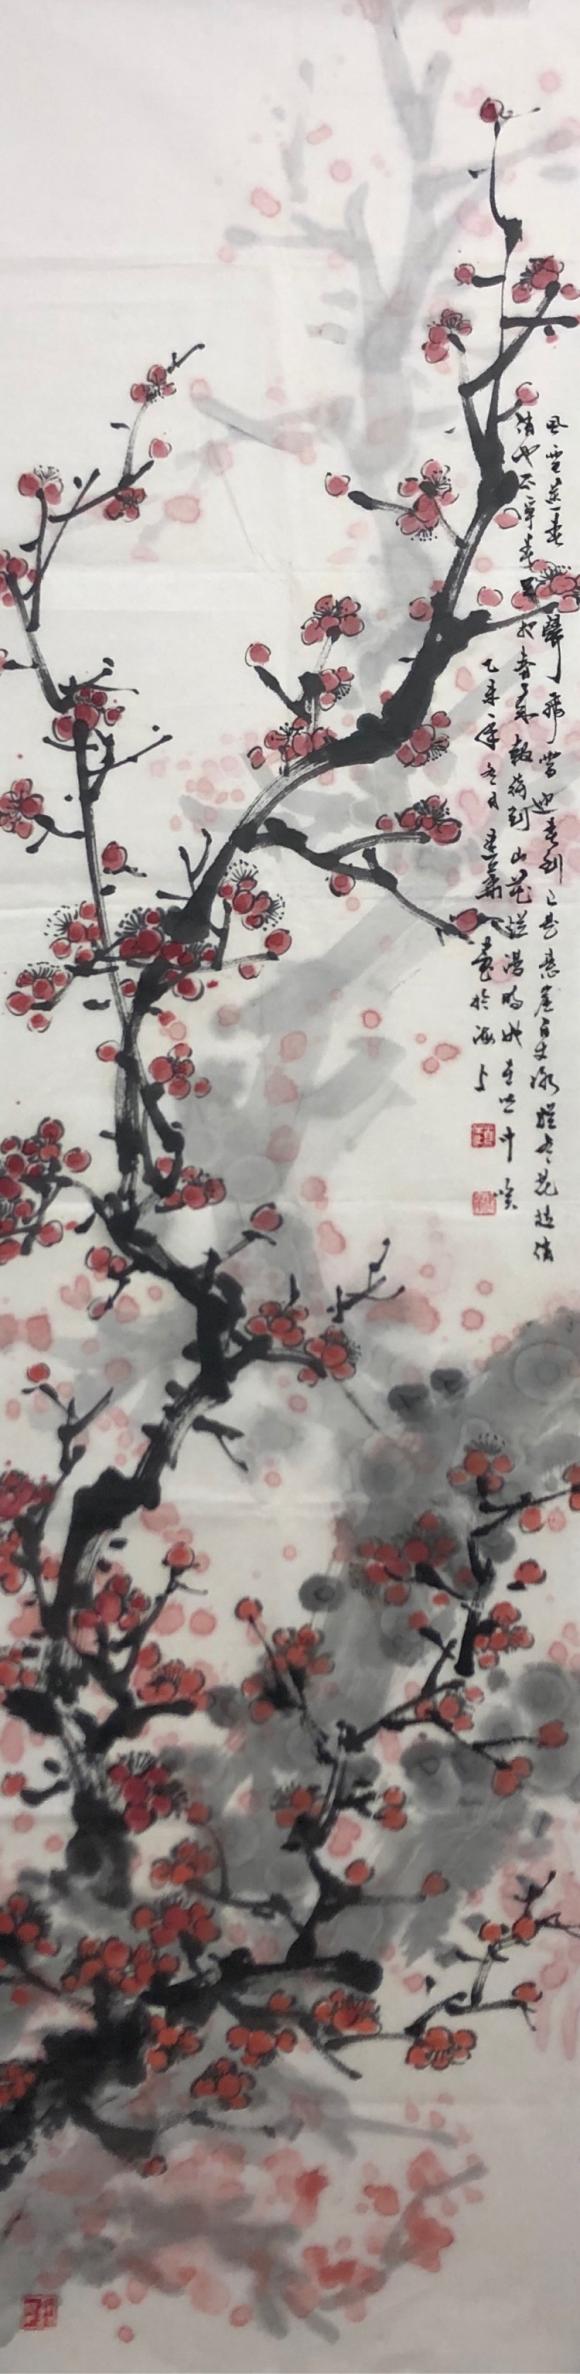 风雨送春歸飛雪迎春到已是悬崖百丈冰猶有花枝俏
俏也不争春只把春来報待到山花烂漫時她在丛中笑
乙未年冬月 画於海上